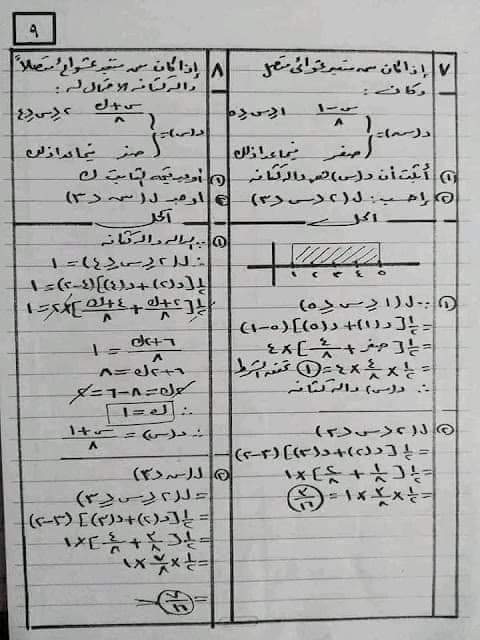 ٩
٧ إذا كان سہ متغير عشوائي متصل
وكان :
د(س) = { (س - ١)/٨ ١ ≤ س ≤ ٥
صفر فيما عدا ذلك
① أثبت أن د(س) هو دالة كثافة
② احسب : ل(٢ < س < ٣)
الحل
1 2 3 4 5
① ∵ ل(١ ≤ س ≤ ٥)
= ١/٢ [د(١) + د(٥)] (٥ - ١)
= ١/٢ [صفر + ٤/٨] × ٤
= ١/٢ × ٤/٨ × ٤ = ① تحقق الشرط
∴ د(س) دالة كثافة
② ل(٢ < س < ٣)
= ١/٢ [د(٢) + د(٣)] (٣ - ٢)
= ١/٢ [١/٨ + ٢/٨] × ١
= ١/٢ × ٣/٨ × ١ = ٣/١٦
٨ إذا كان سہ متغير عشوائي متصلاً
دالة كثافة الاحتمال له :
د(س) = { (س + ك)/٨ ٢ ≤ س ≤ ٤
صفر فيما عدا ذلك
① أوجد قيمة الثابت ك
② أوجد ل(سہ < ٣)
الحل
① ∵ الدالة دالة كثافة
∴ ل(٢ ≤ س ≤ ٤) = ١
١/٢ [د(٢) + د(٤)] (٤ - ٢) = ١
١/٢ [(٢ + ك)/٨ + (٤ + ك)/٨] × ٢ = ١
(٦ + ٢ك)/٨ = ١
٦ + ٢ك = ٨
٢ك = ٨ - ٦ = ٢
∴ ك = ١
∴ د(س) = (س + ١)/٨
② ل(س < ٣)
= ل(٢ ≤ س < ٣)
= ١/٢ [د(٢) + د(٣)] (٣ - ٢)
= ١/٢ [٣/٨ + ٤/٨] × ١
= ١/٢ × ٧/٨ × ١
= ٧/١٦